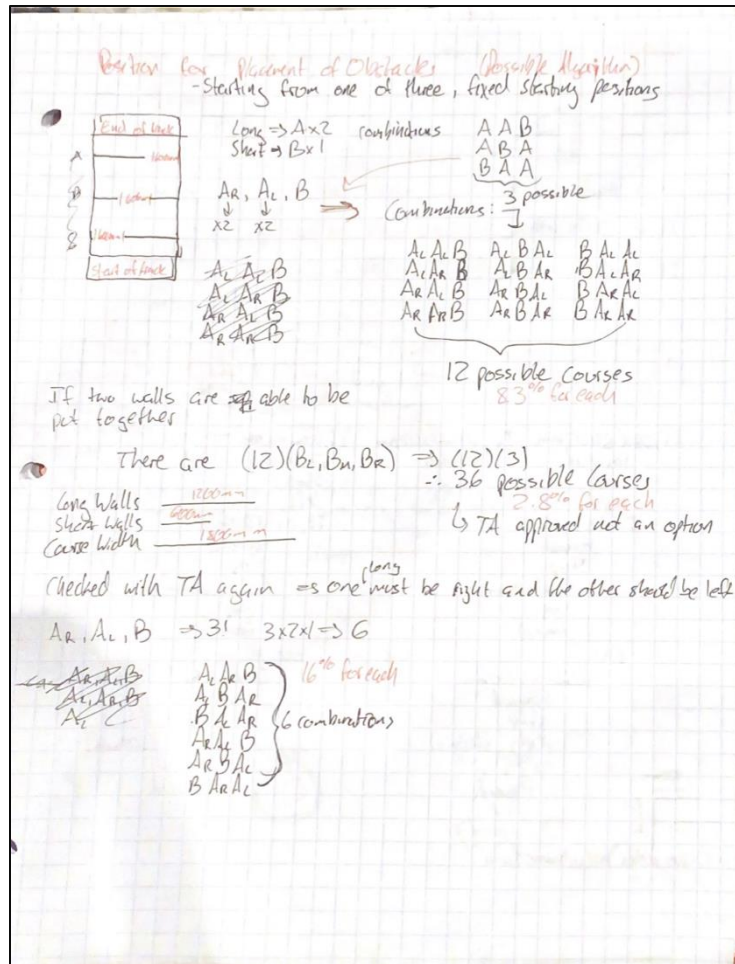 Position for Placement of Obstacles (Possible Algorithm)
- Starting from one of three, fixed starting positions
End of track
Long => A x 2 combinations
Short => B x 1
A A B
A B A
B A A
3 possible
A
B
AR, AL, B
↓ ↓
x2 x2
Combinations:
Start of track
AL AL B
AL AR B
AR AL B
AR AR B
AL AL B AL B AL B AL AL
AL AR B AL B AR B AL AR
AR AL B AR B AL B AR AL
AR AR B AR B AR B AR AR
12 possible courses
83% for each
If two walls are able to be
put together
There are (12)(BL, BM, BR) => (12)(3)
∴ 36 possible courses
2.8% for each
↳ TA approved not an option
Long Walls 1200mm
Short Walls 600mm
Course Width 1800mm
Checked with TA again => one long must be right and the other should be left
AR, AL, B => 3! 3x2x1 => 6
AR, AL, B
AL, AR, B
AL
AL AR B
AL B AR
B AL AR
AR AL B
AR B AL
B AR AL
16% for each
6 combinations